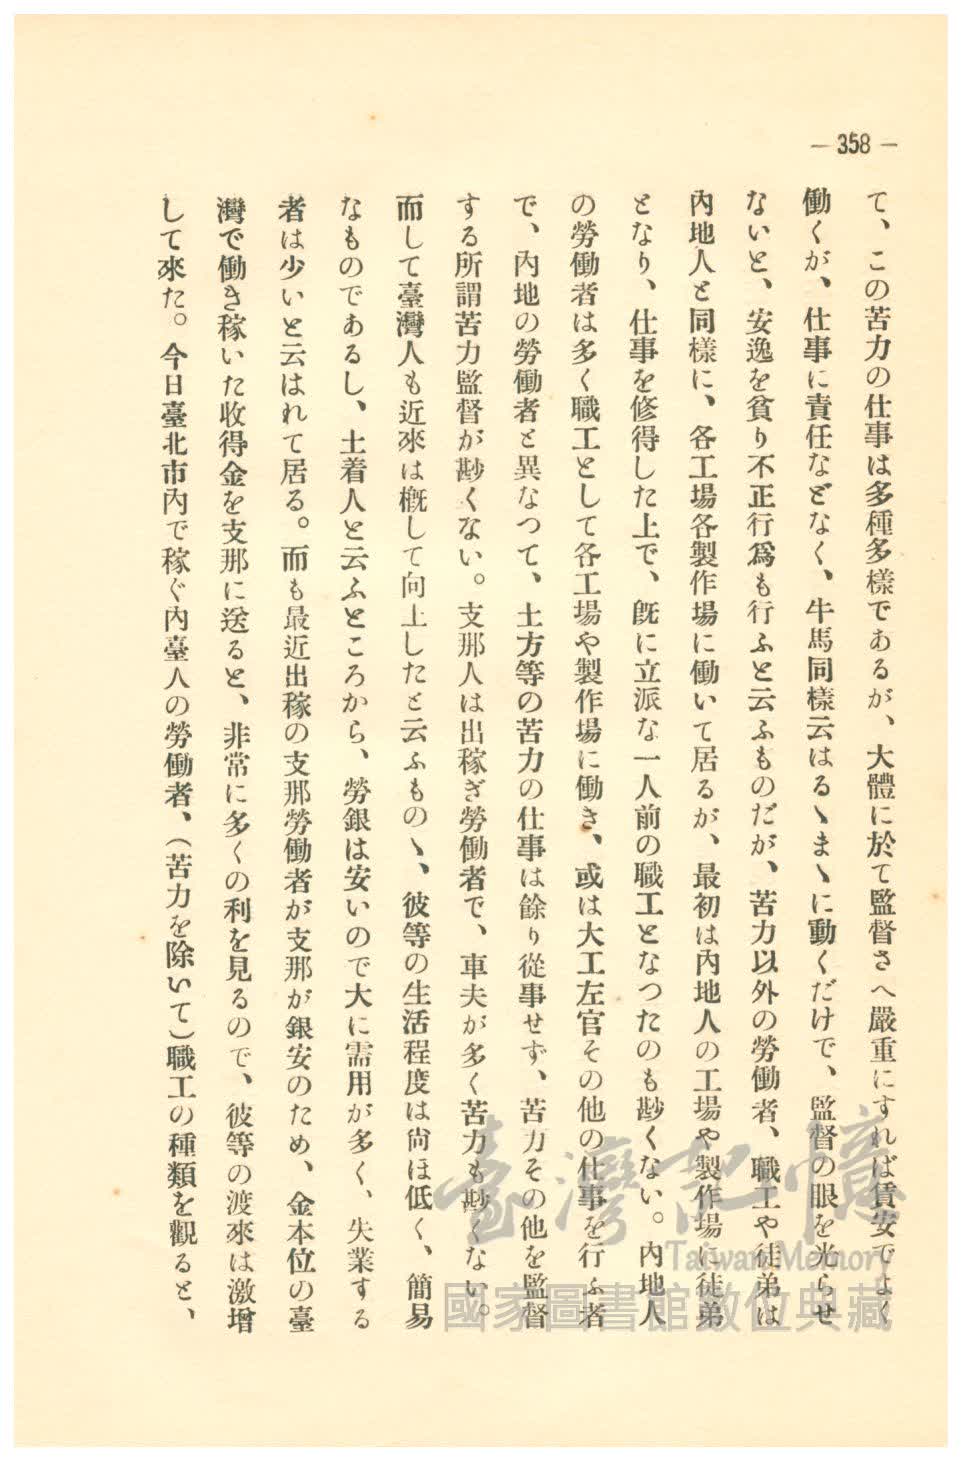 — 358 —
て、この苦力の仕事は多種多樣であるが、大體に於て監督さへ嚴重にすれば賃安でよく
働くが、仕事に責任などなく、牛馬同樣云はるゝまゝに動くだけで、監督の眼を光らせ
ないと、安逸を貧り不正行爲も行ふと云ふものだが、苦力以外の勞働者、職工や徒弟は
內地人と同樣に、各工場各製作場に働いて居るが、最初は內地人の工場や製作場に徒弟
となり、仕事を修得した上で、旣に立派な一人前の職工となつたのも尠くない。內地人
の勞働者は多く職工として各工場や製作場に働き、或は大工左官その他の仕事を行ふ者
で、內地の勞働者と異なつて、土方等の苦力の仕事は餘り從事せず、苦力その他を監督
する所謂苦力監督が尠くない。支那人は出稼ぎ勞働者で、車夫が多く苦力も尠くない。
而して臺灣人も近來は槪して向上したと云ふものゝ、彼等の生活程度は尙ほ低く、簡易
なものであるし、土着人と云ふところから、勞銀は安いので大に需用が多く、失業する
者は少いと云はれて居る。而も最近出稼の支那勞働者が支那が銀安のため、金本位の臺
灣で働き稼いた收得金を支那に送ると、非常に多くの利を見るので、彼等の渡來は激增
して來た。今日臺北市內で稼ぐ內臺人の勞働者、（苦力を除いて）職工の種類を觀ると、
臺灣記憶
Taiwan Memory
國家圖書館數位典藏